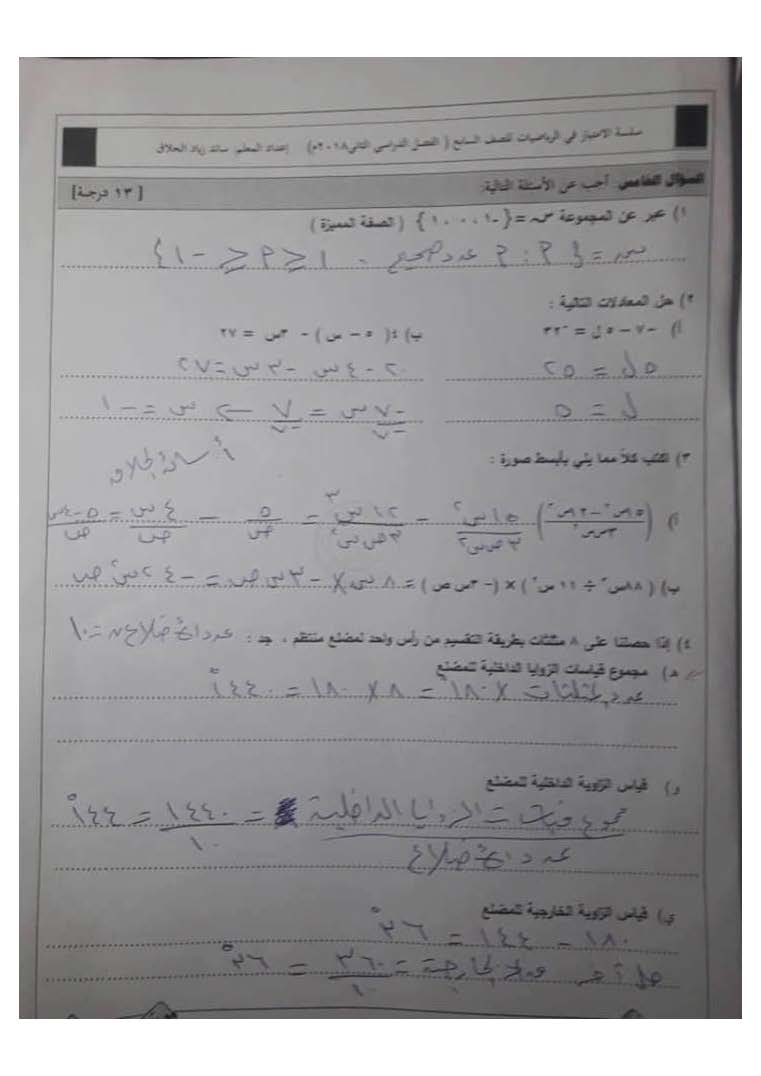 سلسلة الامتياز في الرياضيات للصف السابع ( الفصل الدراسي الثاني ٢٠١٨م) إعداد المعلم: سائد زياد الحلاق
السؤال الخامس: أجب عن الأسئلة التالية: [ ١٣ درجة]
١) عبر عن المجموعة س = { -١ ، ٠ ، ١ } ( الصفة المميزة )
س = { م : م عدد صحيح ، ١ ≥ م ≥ -١ }
٢) حل المعادلات التالية :
أ) -٧ - ٥ ل = -٣٢ ب) ٤( ٥ - س ) - ٣س = ٢٧
٥ ل = ٢٥ ٢٠ - ٤ س - ٣ س = ٢٧
ل = ٥ -٧ س / -٧ = ٧ / -٧ ← س = -١
٣) اكتب كلاً مما يلي بأبسط صورة :
ب) ( ٨٨س ÷ ١١ س ) × (-٣س ص ) = ٨ س × -٣ س ص = -٢٤ س² ص
٤) إذا حصلنا على ٨ مثلثات بطريقة التقسيم من رأس واحد لمضلع منتظم ، جد : عدد الأضلاع ن = ١٠
هـ) مجموع قياسات الزوايا الداخلية للمضلع
عدد المثلثات × ١٨٠ = ٨ × ١٨٠ = ١٤٤٠°
و) قياس الزاوية الداخلية للمضلع
مجموع قياسات الزوايا الداخلية = ١٤٤٠ / ١٠ = ١٤٤°
عدد الأضلاع
ي) قياس الزاوية الخارجية للمضلع
١٨٠ - ١٤٤ = ٣٦°
حل آخر الخارجية = ٣٦٠ / ١٠ = ٣٦°